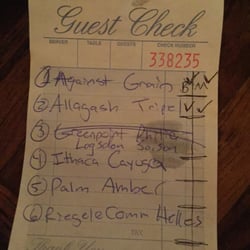 Guest Check
SERVER TABLE GUESTS CHECK NUMBER
338235
1 Against Grain B M
2 Allagash Tripel
3 Greenpoint
Logsdon Saison
4 Ithaca Cayuga
5 Palm Amber
6 Riegele Comm Helles
TAX
Thank You